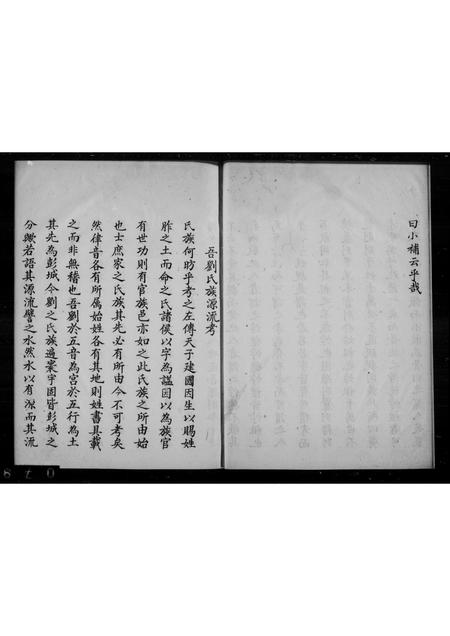 曰小補云乎哉
吾劉氏族源流考
氏族何昉乎考之左傳天子建國因生以賜姓
胙之土而命之氏諸侯以字為諡因以為族官
有世功則有官族邑亦如之此氏族之所由始
也士庶家之氏族其先必有所由今不可考矣
然律音各有所属始姓各有其地則姓書具載
之而非無稽也吾劉於五音為宮於五行為土
其先為彭城今劉之氏族遍寰宇固皆彭城之
分蹶若語其源流譬之水然水以有源而其流
078